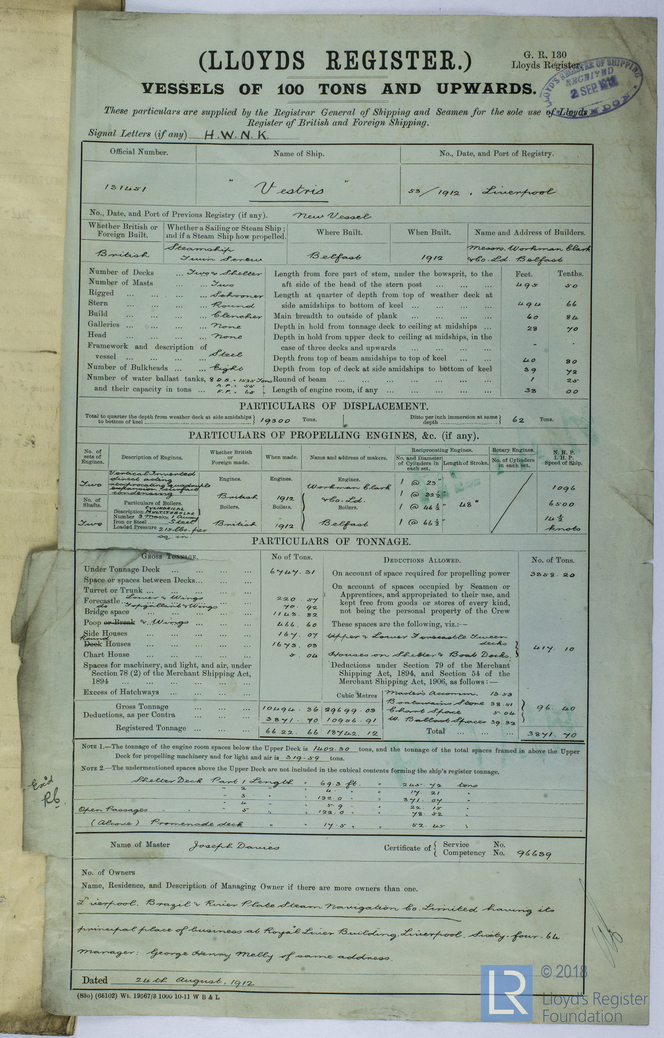 (LLOYDS REGISTER.)
G. R. 130
Lloyds Register.
VESSELS OF 100 TONS AND UPWARDS.
LLOYD'S REGISTER OF SHIPPING
RECEIVED
2 SEP
LONDON
These particulars are supplied by the Registrar General of Shipping and Seamen for the sole use of Lloyds
Register of British and Foreign Shipping.
Signal Letters (if any) H.W.N.K.
Official Number. Name of Ship. No., Date, and Port of Registry.
131451 " Vestris " 53/1912. Liverpool
No., Date, and Port of Previous Registry (if any). New Vessel
Whether British or Foreign Built. Whether a Sailing or Steam Ship; and if a Steam Ship how propelled. Where Built. When Built. Name and Address of Builders.
British Steamship Twin Screw Belfast 1912 Messrs. Workman Clark & Co. Ld. Belfast
Number of Decks Two & Shelter Length from fore part of stem, under the bowsprit, to the Feet. Tenths.
Number of Masts Two aft side of the head of the stern post 495 50
Rigged Schooner Length at quarter of depth from top of weather deck at
Stern Round side amidships to bottom of keel 494 66
Build Clencher Main breadth to outside of plank 60 84
Galleries None Depth in hold from tonnage deck to ceiling at midships 28 70
Head None Depth in hold from upper deck to ceiling at midships, in the
Framework and description of case of three decks and upwards
vessel Steel Depth from top of beam amidships to top of keel 40 80
Number of Bulkheads Eight Depth from top of deck at side amidships to bottom of keel 39 72
Number of water ballast tanks, Round of beam 1 25
and their capacity in tons Length of engine room, if any 38 00
PARTICULARS OF DISPLACEMENT.
Total to quarter the depth from weather deck at side amidships to bottom of keel 19300 Tons. Ditto per inch immersion at same depth 62 Tons.
PARTICULARS OF PROPELLING ENGINES, &c. (if any).
No. of sets of Engines. Description of Engines. Whether British or Foreign made. When made. Name and address of makers. Reciprocating Engines. Rotary Engines. N.H.P. I.H.P. Speed of Ship.
No. and Diameter of Cylinders in each set. Length of Stroke. No. of Cylinders in each set.
Two Vertical Inverted direct acting reciprocating quadruple expansion surface condensing
Engines. British 1912 Workman Clark & Co. Ld. 1 @ 23"
1 @ 46½" 48"
1 @ 66½"
1096
6500
14½ knots
No. of Shafts. Particulars of Boilers.
Description Cylindrical Multitubular
Number
Two Iron or Steel Steel
Loaded Pressure 215 lbs. per sq. in.
Boilers. British 1912 Belfast
PARTICULARS OF TONNAGE.
GROSS TONNAGE. No of Tons. DEDUCTIONS ALLOWED. No. of Tons.
Under Tonnage Deck 6747.31 On account of space required for propelling power 3358.20
Space or spaces between Decks On account of spaces occupied by Seamen or
Turret or Trunk Apprentices, and appropriated to their use, and
Forecastle Lower & Wings 220.57 kept free from goods or stores of every kind,
do Topgallant & Wings 70.92 not being the personal property of the Crew
Bridge space 1143.82
Poop or Break & Wings 466.60 These spaces are the following, viz.:—
Side Houses 167.07 Upper & Lower Forecastle Tween decks
Round Deck Houses 1673.03 Houses on Shelter & Boat Decks 417.10
Chart House 5.04
Spaces for machinery, and light, and air, under Deductions under Section 79 of the Merchant
Section 78 (2) of the Merchant Shipping Act, Shipping Act, 1894, and Section 54 of the
1894 Merchant Shipping Act, 1906, as follows:—
Excess of Hatchways
Cubic Metres
Master's Accomm. 13.53
Boatswain's Store 38.51
Chart Space 5.04
W. Ballast Spaces 39.32
96.40
Gross Tonnage 10494.36 29699.03
Deductions, as per Contra 3871.70 10956.91
Registered Tonnage 6622.66 18742.12
Total 3871.70
NOTE 1.—The tonnage of the engine room spaces below the Upper Deck is 1402.30 tons, and the tonnage of the total spaces framed in above the Upper
Deck for propelling machinery and for light and air is 319.59 tons.
NOTE 2.—The undermentioned spaces above the Upper Deck are not included in the cubical contents forming the ship's register tonnage.
Shelter Deck Part 1 Length 69.3 ft. 245.72 tons
" 2 " 4 " 17.21 "
" 3 " 122.0 " 371.07 "
Open Passages " 4 " 5.9 " 22.15 "
" 5 " 122.0 " 78.52 "
(Above) Promenade deck " 17.5 " 52.45 "
Name of Master Joseph Davies Certificate of Service No.
Competency No. 96639
No. of Owners
Name, Residence, and Description of Managing Owner if there are more owners than one.
Liverpool, Brazil & River Plate Steam Navigation Co. Limited having its
principal place of business at Royal Liver Building, Liverpool. Sixty-four. 64
Manager: George Henry Melly of same address.
Dated 24th August, 1912
(83o) (66102) Wt. 19567/3 1000 10-11 W B & L
LR
© 2018
Lloyd's Register
Foundation